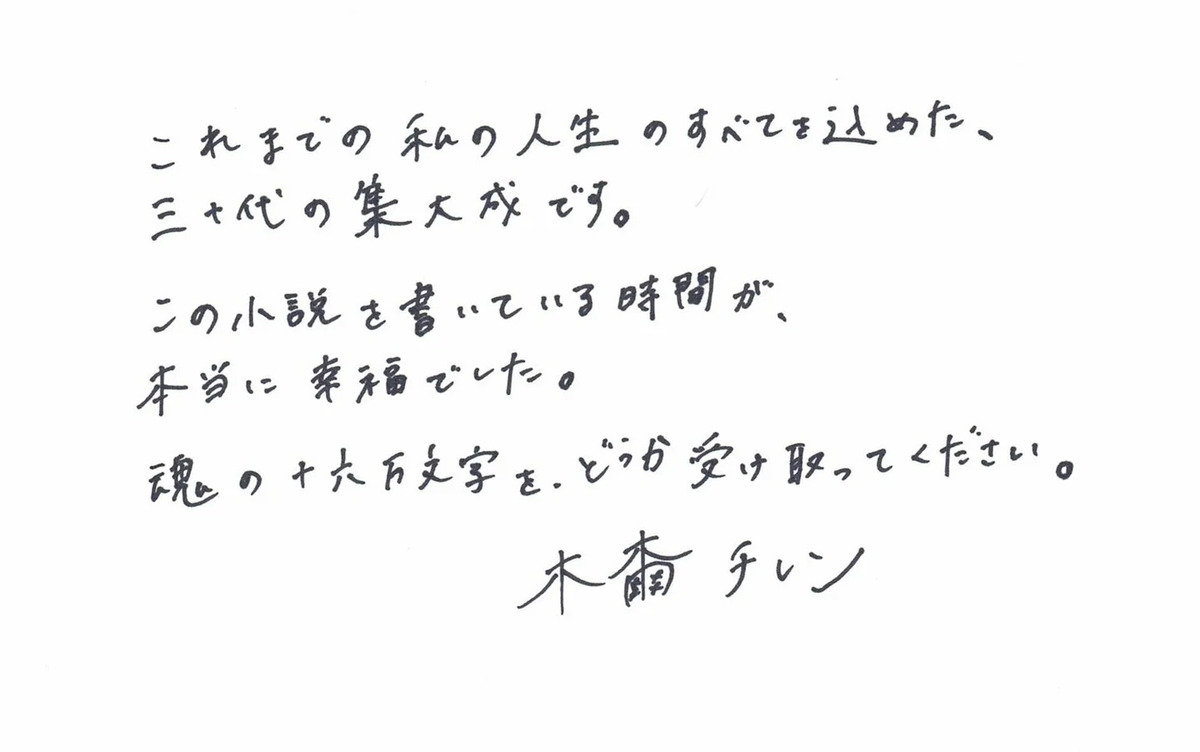 これまでの私の人生のすべてを込めた、
三十代の集大成です。
この小説を書いている時間が、
本当に幸福でした。
魂の十六万文字を、どうか受け取ってください。
木爾チレン